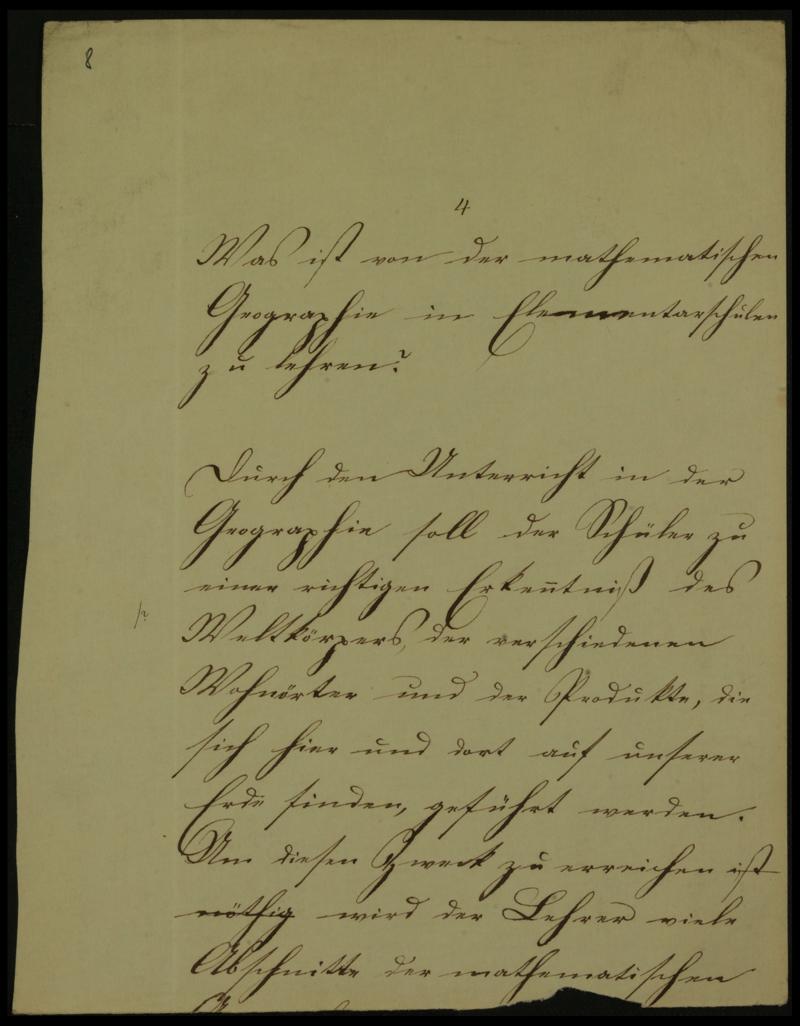 8
4
Was ist von der mathematischen
Geographie in Elementarschulen
zu lehren?
Durch den Unterricht in der
Geographie soll der Schüler zu
einer richtigen Erkenntniß des
Weltkörpers, der verschiedenen
Wohnörter und der Produkte, die
sich hier und dort auf unserer
Erde finden, geführt werden.
Um diesen Zweck zu erreichen ist
nöthig wird der Lehrer viele
Abschnitte der mathematischen